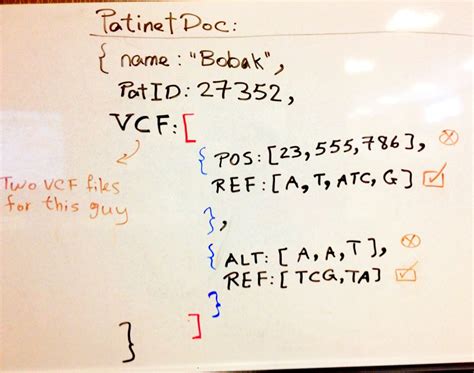 PatinetDoc:
{ name: "Bobak",
PatID: 27352,
VCF: [
{ POS: [23, 555, 786],
REF: [A, T, ATC, G]
},
Two VCF files
for this guy
{ ALT: [ A, A, T ],
REF: [ TCG, TA]
}
]
}